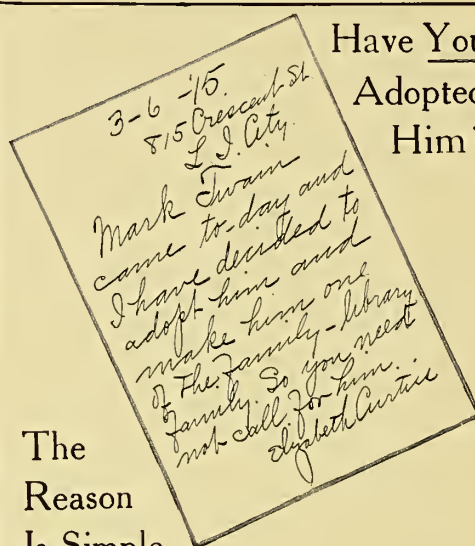 Have You
Adopted
Him
3-6-'15.
815 Crescent St.
L. I. City.
Mark Twain
came to-day and
I have decided to
adopt him and
make him one
of the family-library
family. So you need
not call for him.
Elizabeth Curtis
The
Reason
Is Simple